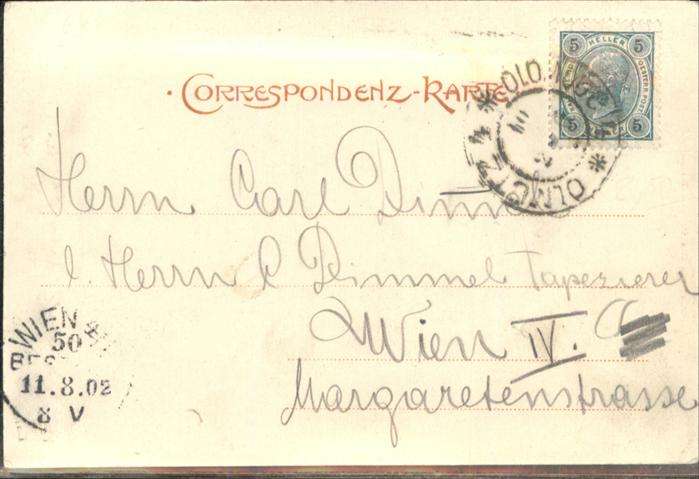 5 HELLER 5
5 5
CORRESPONDENZ-KARTE
OLMÜTZ
Herrn Carl
Herrn C Dimmel Tapezierer
Wien IV.
Margaretenstrasse
WIEN
50
11.8.02
8 V